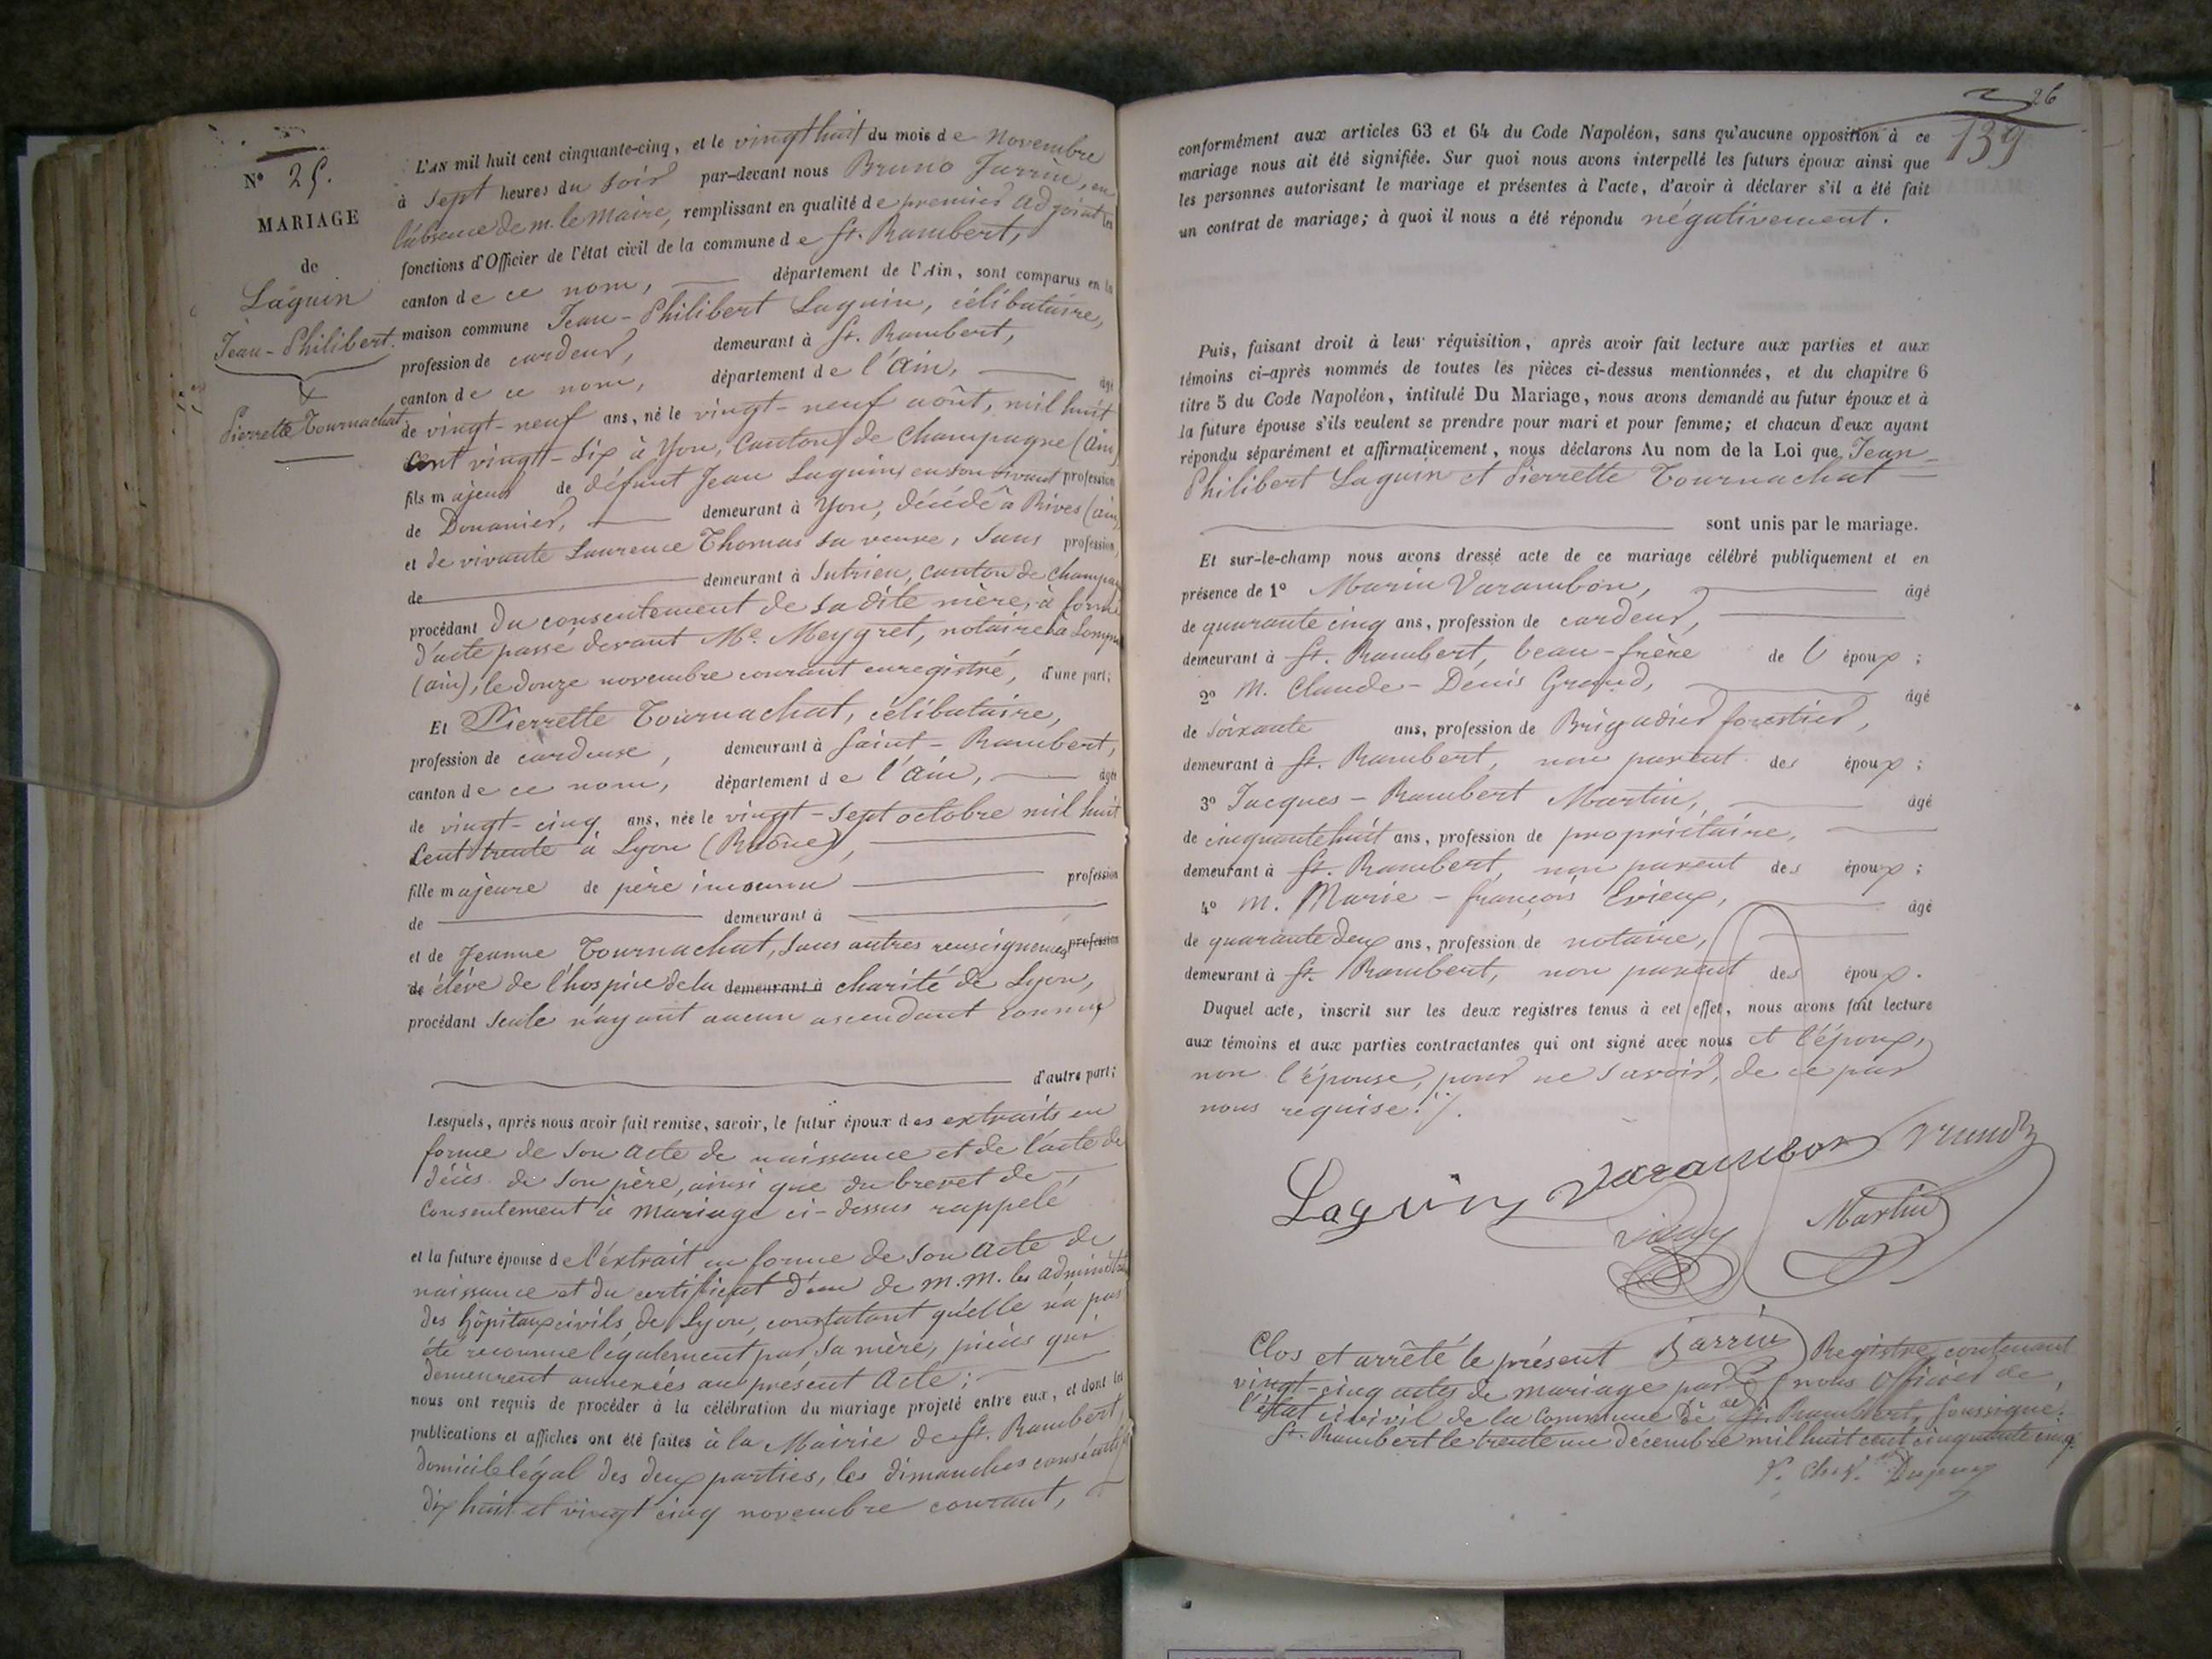 N° 25.
MARIAGE
de
Laguin
Jean-Philibert.
&
Pierrette Tournachat
L'AN mil huit cent cinquante-cinq, et le vingt huit du mois de Novembre
à sept heures du soir par-devant nous Bruno Jarrin, en
l'absence de m. le Maire, remplissant en qualité de premier adjoint les
fonctions d'Officier de l'état civil de la commune de St. Rambert,
canton de ce nom, département de l'Ain, sont comparus en la
maison commune Jean-Philibert Laguin, célibataire,
profession de cardeur, demeurant à St. Rambert,
canton de ce nom, département de l'Ain, âgé
de vingt-neuf ans, né le vingt-neuf août, mil huit
cent vingt-six à Yon, Canton de Champagne (Ain)
fils majeur de défunt Jean Laguin, en son vivant profession
de Douanier, demeurant à Yon, décédé à Rives (ain)
et de vivante Laurence Thomas sa veuve, sans profession
de demeurant à Sutrieu, canton de Champag
procédant du consentement de sa dite mère, à forme
d'acte passé devant Me. Meygret, notaire à
(ain), le douze novembre courant enregistré, d'une part;
Et Pierrette Tournachat, célibataire,
profession de cardeuse, demeurant à Saint-Rambert,
canton de ce nom, département de l'Ain, âgée
de vingt-cinq ans, née le vingt-sept octobre mil huit
cent trente à Lyon (Rhône),
fille majeure de père inconnu profession
de demeurant à
et de Jeanne Tournachat, sans autres renseignemens profession
de élève de l'hospice de la demeurant à charité de Lyon,
procédant seule n'ayant aucun ascendant connu
d'autre part;
Lesquels, après nous avoir fait remise, savoir, le futur époux des extraits en
forme de son acte de naissance et de l'acte de
décès de son père, ainsi que du brevet de
consentement à mariage ci-dessus rappelé
et la future épouse de l'extrait en forme de son acte de
naissance et du certificat d'eux de M.M. les administ
des hôpitaux civils de Lyon, constatant qu'elle n'a pas
été reconnue légalement par sa mère, pièces qui
demeurent annexées au présent acte;
nous ont requis de procéder à la célébration du mariage projeté entre eux, et dont les
publications et affiches ont été faites à la Mairie de St. Rambert,
domicile légal des deux parties, les dimanches consécutifs
dix huit et vingt cinq novembre courant,
26
139
conformément aux articles 63 et 64 du Code Napoléon, sans qu'aucune opposition à ce
mariage nous ait été signifiée. Sur quoi nous avons interpellé les futurs époux ainsi que
les personnes autorisant le mariage et présentes à l'acte, d'avoir à déclarer s'il a été fait
un contrat de mariage; à quoi il nous a été répondu négativement.
Puis, faisant droit à leur réquisition, après avoir fait lecture aux parties et aux
témoins ci-après nommés de toutes les pièces ci-dessus mentionnées, et du chapitre 6
titre 5 du Code Napoléon, intitulé Du Mariage, nous avons demandé au futur époux et à
la future épouse s'ils veulent se prendre pour mari et pour femme; et chacun d'eux ayant
répondu séparément et affirmativement, nous déclarons Au nom de la Loi que Jean-
Philibert Laguin et Pierrette Tournachat
sont unis par le mariage.
Et sur-le-champ nous avons dressé acte de ce mariage célébré publiquement et en
présence de 1° Marin Varambon, âgé
de quarante cinq ans, profession de cardeur,
demeurant à St. Rambert, beau-frère de l'époux;
2° M. Claude-Denis Grand, âgé
de soixante ans, profession de Brigadier forestier,
demeurant à St. Rambert, non parent des époux;
3° Jacques-Rambert Martin, âgé
de cinquante huit ans, profession de propriétaire,
demeurant à St. Rambert, non parent des époux;
4° M. Marie-françois Evieux, âgé
de quarante deux ans, profession de notaire,
demeurant à St. Rambert, non parent des époux.
Duquel acte, inscrit sur les deux registres tenus à cet effet, nous avons fait lecture
aux témoins et aux parties contractantes qui ont signé avec nous et l'époux,
non l'épouse, pour ne savoir, de ce par
nous requise./.
Laguin Varambon
Martin
Jarrin
Clos et arrêté le présent Registre contenant
vingt-cinq actes de mariage par nous Officier de
l'état civil de la commune de St. Rambert, soussigné.
St. Rambert le trente un décembre mil huit cent cinquante cinq.
Dupuy